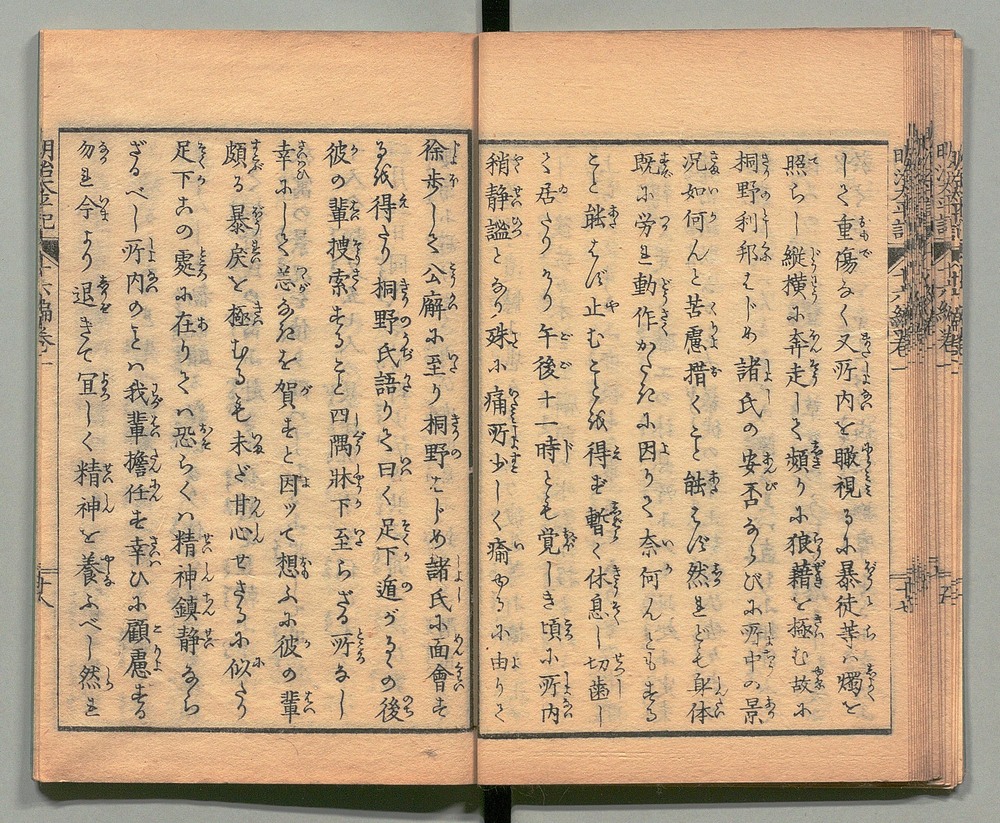 して重傷なく又所内を瞰視るに暴徒等ハ燭を
照らし縦横に奔走して頻りに狼藉を極む故に
桐野利邦はじめ諸氏の安否ならびに所中の景
况如何んと苦慮措くこと能はず然れども身体
既に労れ動作かたきに因りて奈何んともする
こと能はず止むことを得ず暫く休息し切歯し
て居たりけり午後十一時とも覚しき頃に所内
稍静謐となり殊に痛所少しく瘉ゆるに由りて
徐歩して公廨に至り桐野はじめ諸氏に面會す
るを得たり桐野氏語りて曰く足下遁がるゝの後
彼の輩捜索すること四隅牀下至らざる所なし
幸にして恙なきを賀すと因ッて想ふに彼の輩
頗る暴戻を極むるも未ざ甘心せざるに似たり
足下此の處に在りてハ恐らくハ精神鎮静なら
ざるべし所内のことハ我輩擔任す幸ひに顧慮する
勿れ今より退きて冝しく精神を養ふべし然れ
明治太平記
十六編巻一
十八